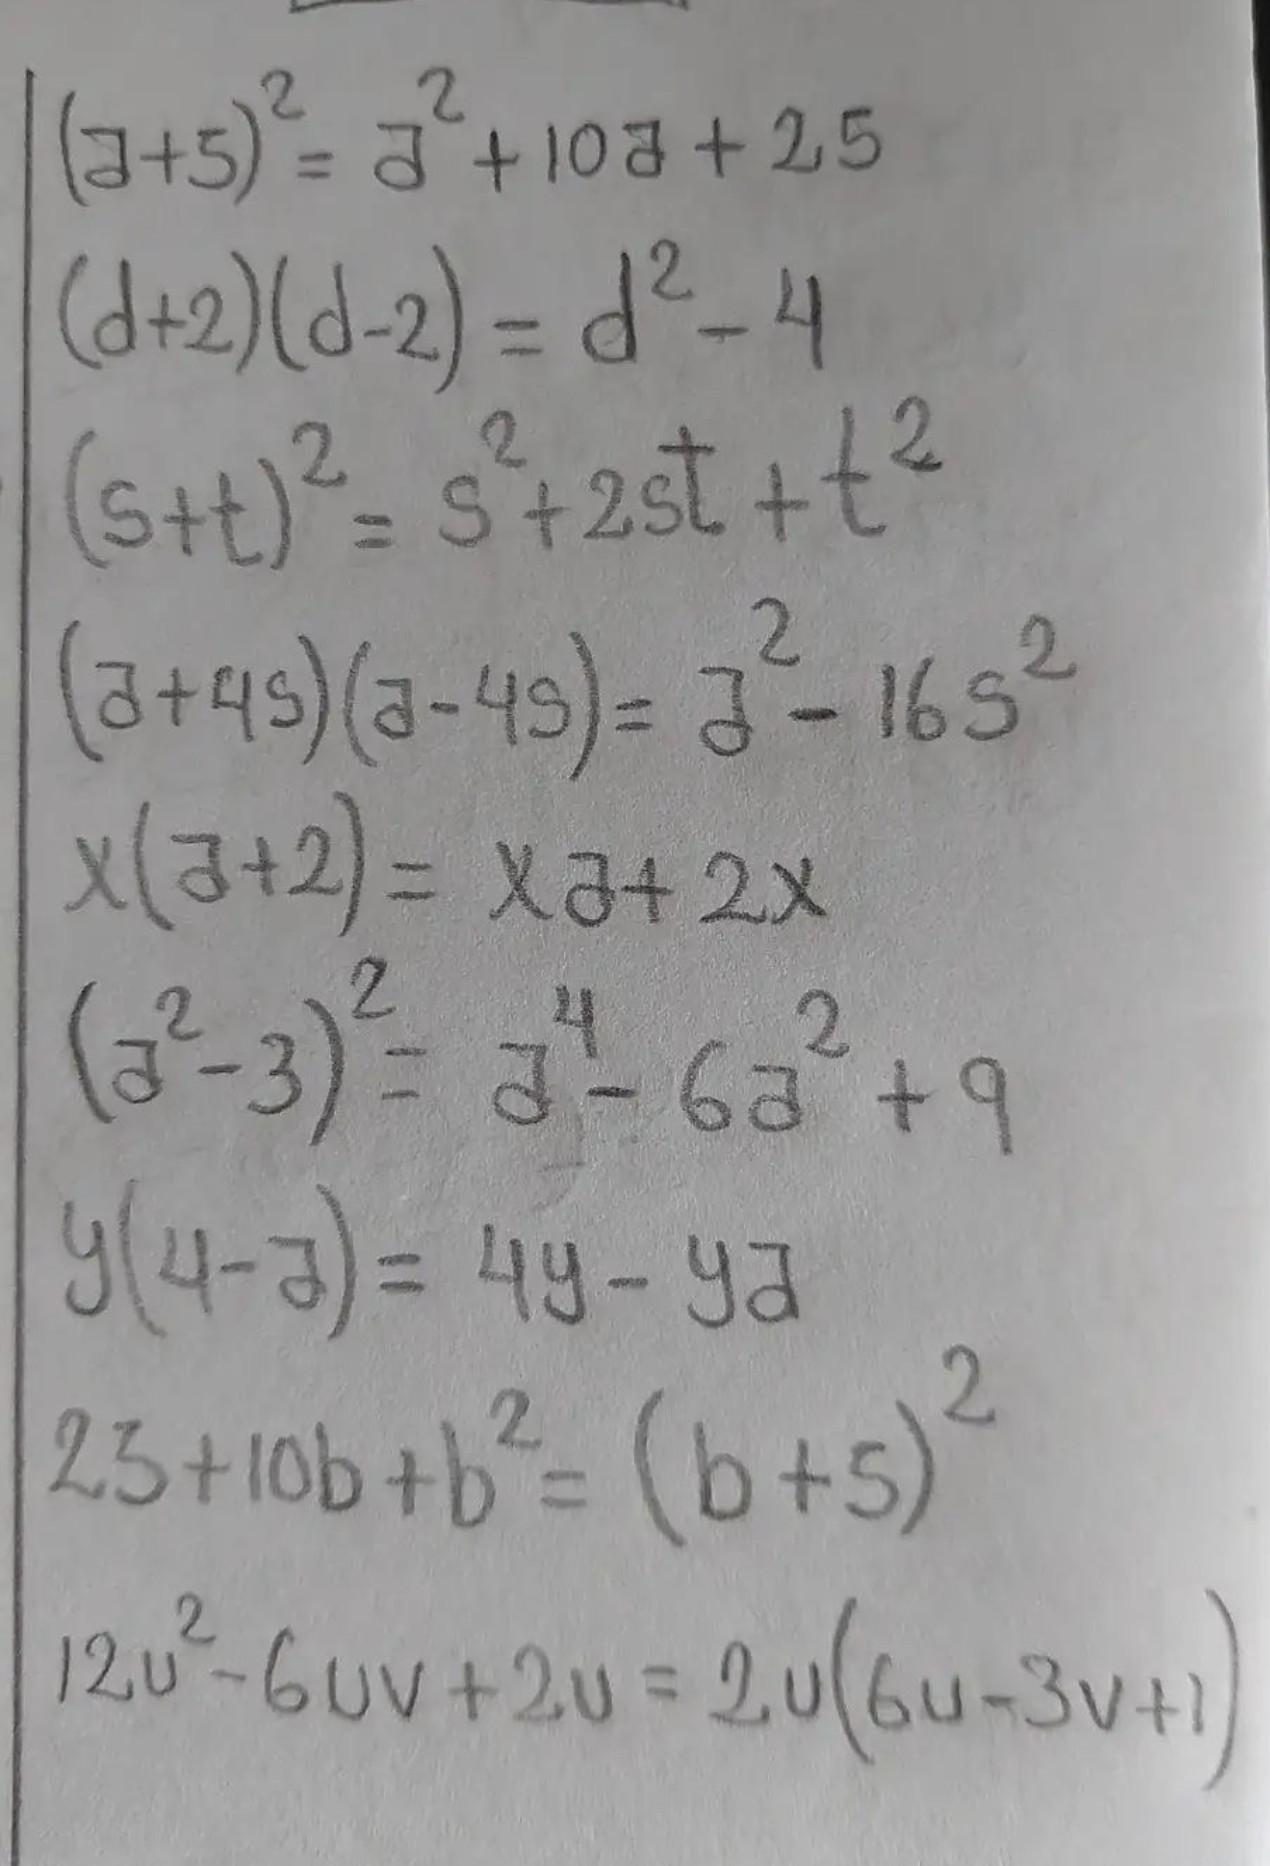 (a+5)² = a² + 10a + 25
(d+2)(d-2) = d² - 4
(s+t)² = s² + 2st + t²
(a+4s)(a-4s) = a² - 16s²
x(a+2) = xa + 2x
(a²-3)² = a⁴ - 6a² + 9
y(4-a) = 4y - ya
25+10b+b² = (b+5)²
12u²-6uv+2u = 2u(6u-3v+1)